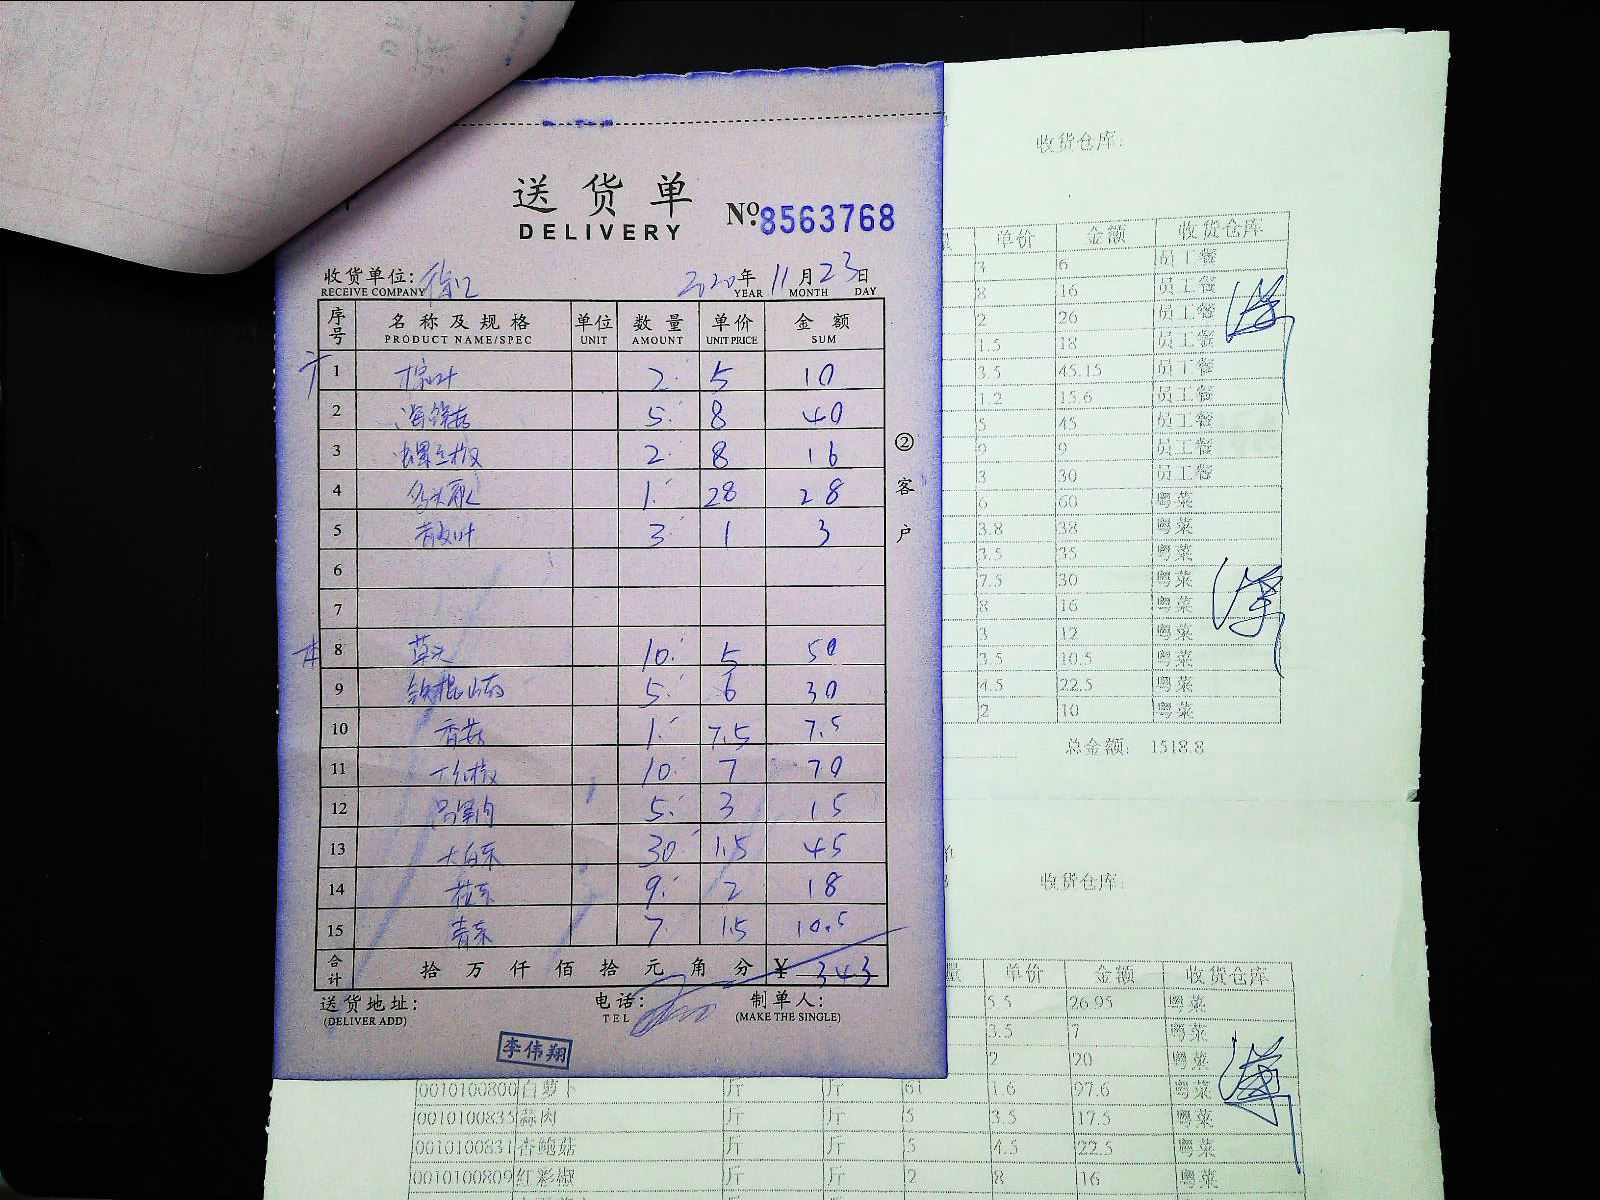 送货单
DELIVERY
No. 8563768
收货单位: 徐汇 2020年 11月 23日
RECEIVE COMPANY YEAR MONTH DAY
序号 名称及规格 单位 数量 单价 金额
PRODUCT NAME/SPEC UNIT AMOUNT UNIT PRICE SUM
1 棕叶 2 5 10
2 海鲜菇 5 8 40
3 螺丝椒 2 8 16
4 28 28
5 3 1 3
6
7
8 10 5 50
9 铁棍山药 5 6 30
10 香菇 1 7.5 7.5
11 10 7 70
12 5 3 15
13 大白菜 30 1.5 45
14 花菜 9 2 18
15 青菜 7 1.5 10.5
合计 拾 万 仟 佰 拾 元 角 分 ¥ 343
送货地址: 电话: 制单人:
(DELIVER ADD) TEL (MAKE THE SINGLE)
李伟翔
② 客户
收货仓库:
单价 金额 收货仓库
3 6 员工餐
8 16 员工餐
2 26 员工餐
1.5 18 员工餐
3.5 45.15 员工餐
1.2 15.6 员工餐
5 45 员工餐
9 9 员工餐
3 30 员工餐
6 60 粤菜
3.8 38 粤菜
3.5 35 粤菜
7.5 30 粤菜
8 16 粤菜
3 12 粤菜
3.5 10.5 粤菜
4.5 22.5 粤菜
2 10 粤菜
总金额: 1518.8
收货仓库:
量 单价 金额 收货仓库
5.5 26.95 粤菜
3.5 7 粤菜
2 20 粤菜
0010100800 白萝卜 斤 斤 61 1.6 97.6 粤菜
0010100835 蒜肉 斤 斤 5 3.5 17.5 粤菜
0010100831 杏鲍菇 斤 斤 5 4.5 22.5 粤菜
0010100809 红彩椒 斤 斤 2 8 16 粤菜